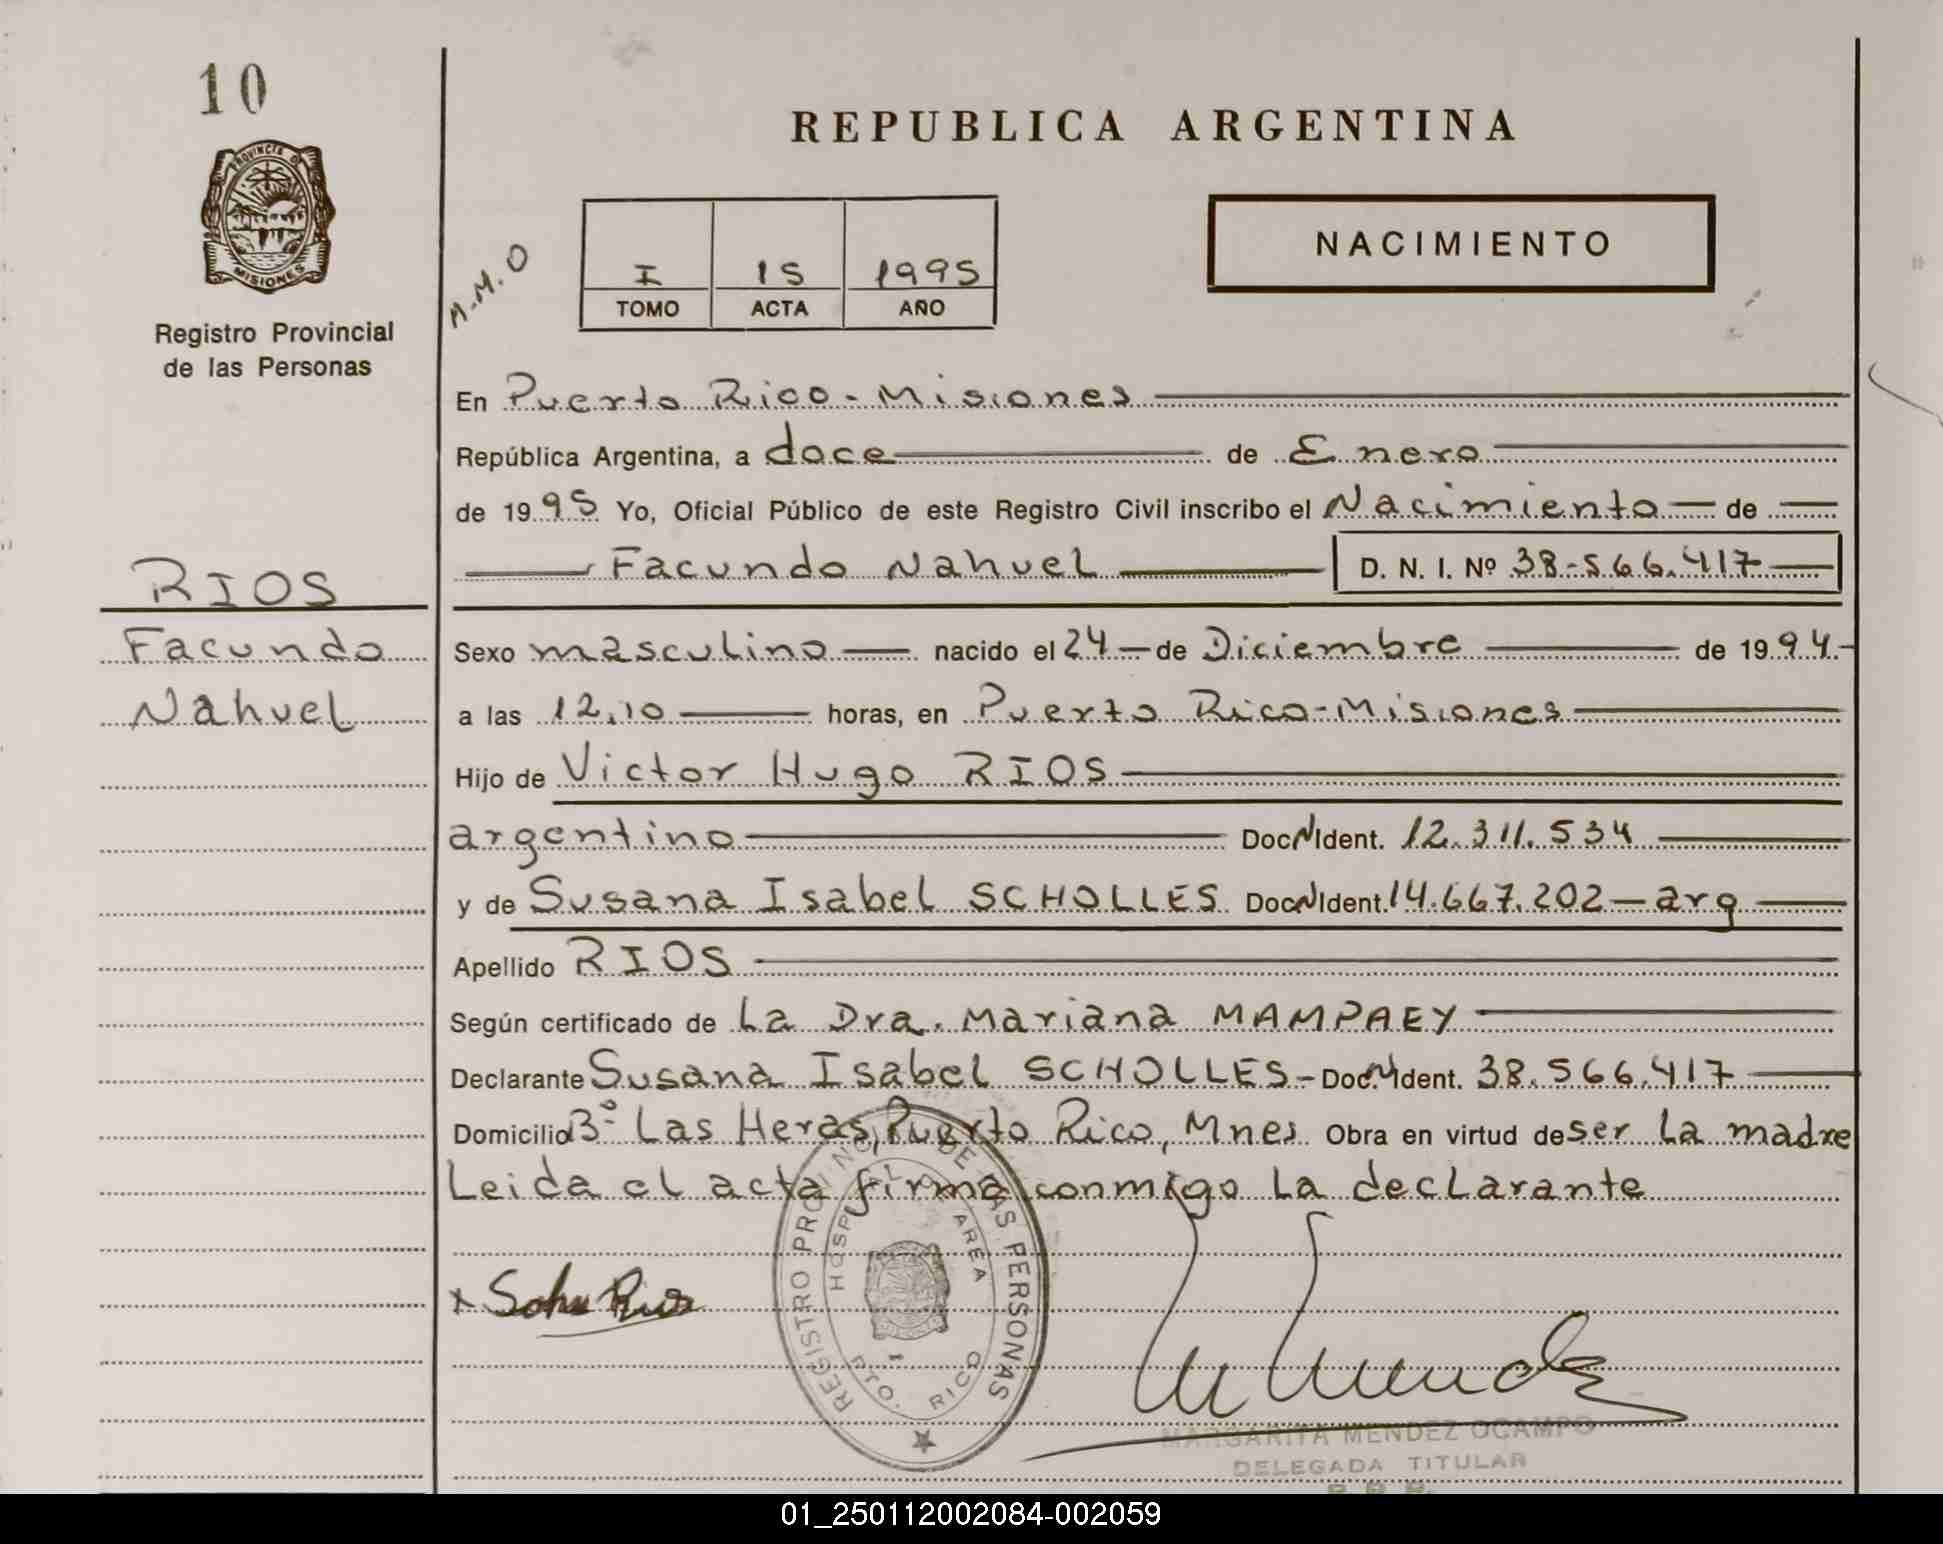 10
PROVINCIA DE
MISIONES
Registro Provincial
de las Personas
REPUBLICA ARGENTINA
M.M.O
I 15 1995
TOMO ACTA AÑO
NACIMIENTO
En Puerto Rico - Misiones
República Argentina, a doce de Enero
de 1995 Yo, Oficial Público de este Registro Civil inscribo el Nacimiento de
Facundo Nahuel D. N. I. Nº 38.566.417
RIOS
Facundo
Nahuel
Sexo masculino nacido el 24 de Diciembre de 1994.
a las 12,10 horas, en Puerto Rico - Misiones
Hijo de Victor Hugo RIOS
argentino Doc N Ident. 12.311.534
y de Susana Isabel SCHOLLES Doc N Ident. 14.667.202 - arg
Apellido RIOS
Según certificado de La Dra. Mariana MAMPAEY
Declarante Susana Isabel SCHOLLES - Doc. N Ident. 38.566.417
Domicilio Bº Las Heras, Puerto Rico, Mnes Obra en virtud de ser la madre
Leida el acta firma conmigo la declarante
REGISTRO PROVINCIAL DE LAS PERSONAS
HOSPITAL DE AREA
PTO. RICO
MARGARITA MENDEZ OCAMPO
DELEGADA TITULAR
01_250112002084-002059